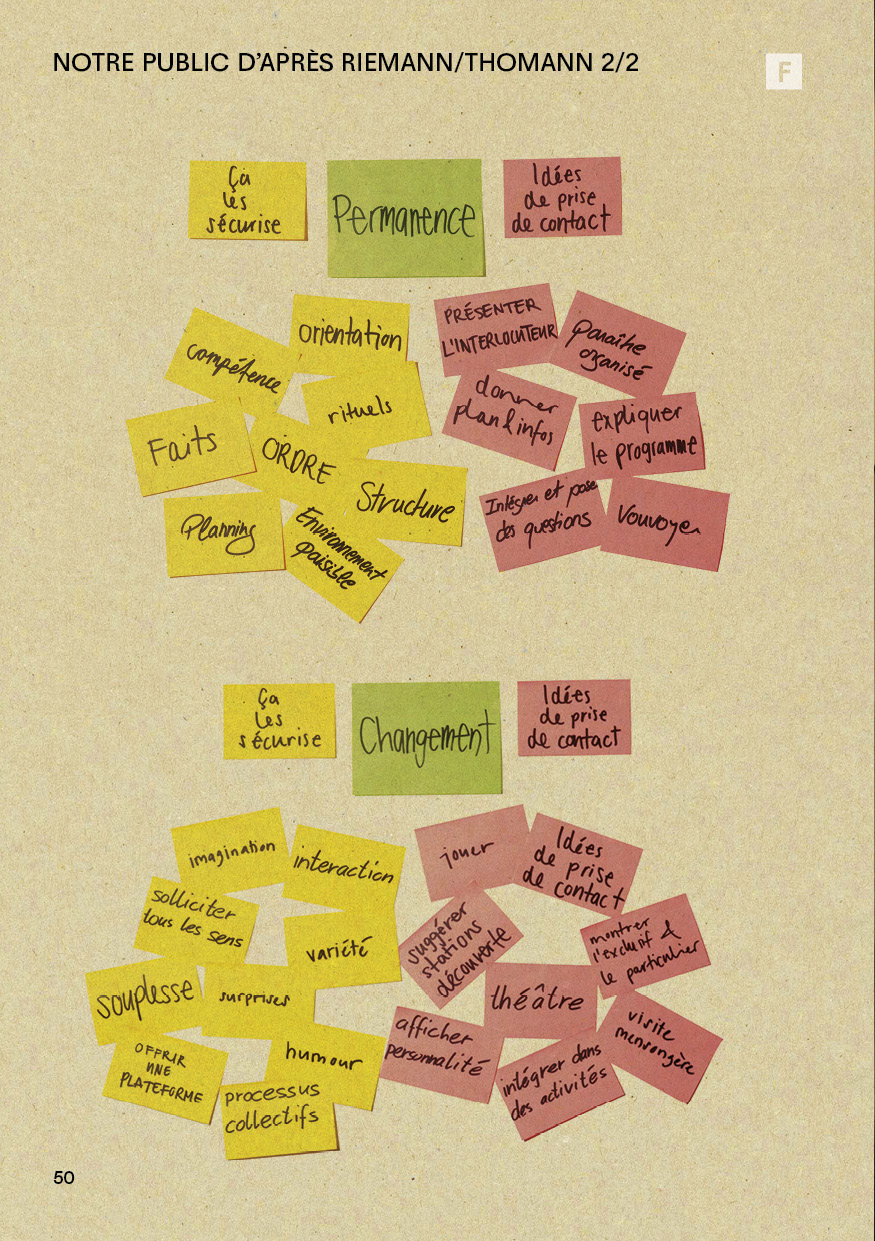 NOTRE PUBLIC D'APRÈS RIEMANN/THOMANN 2/2
F
Ça
les
sécurise
Permanence
Idées
de prise
de contact
orientation
compétence
rituels
Faits
ORDRE
Structure
Planning
Environnement
paisible
PRÉSENTER
L'INTERLOCUTEUR
paraître
organisé
donner
plan & infos
expliquer
le programme
Intégrer et pose
des questions
Vouvoyer
Ça
les
sécurise
Changement
Idées
de prise
de contact
imagination
interaction
solliciter
tous les sens
variété
souplesse
surprises
OFFRIR
UNE
PLATEFORME
humour
processus
collectifs
jouer
Idées
de prise
de contact
suggérer
stations
découverte
montrer
l'exclusif &
le particulier
théâtre
afficher
personnalité
visite
mensongère
intégrer dans
des activités
50